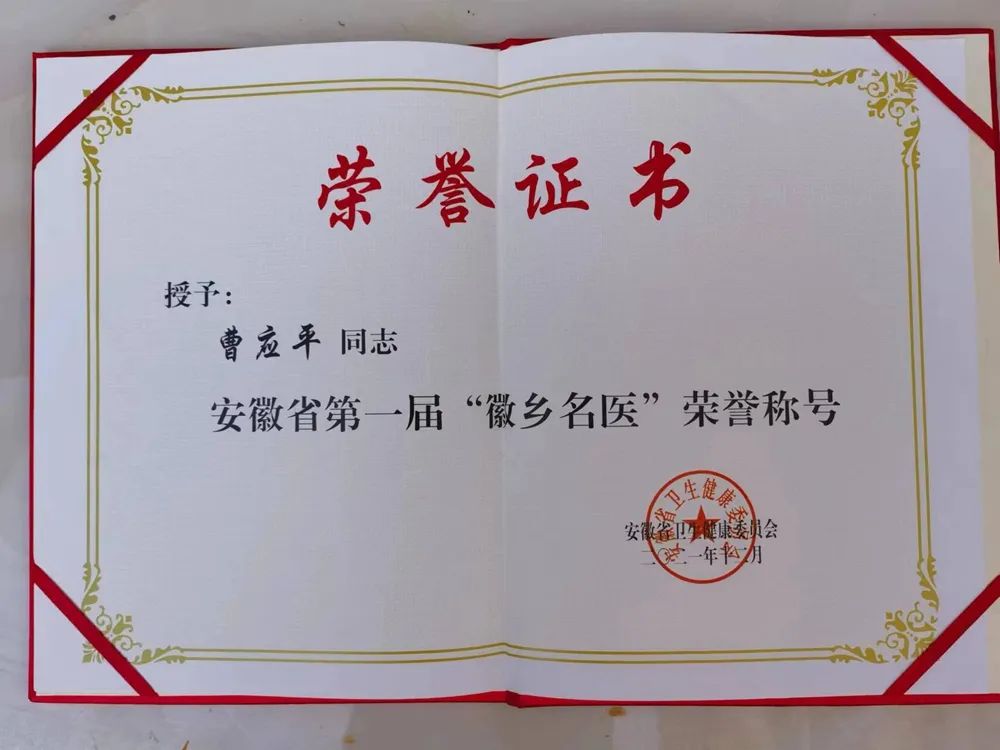 荣誉证书
授予：
曹应平 同志
安徽省第一届“徽乡名医”荣誉称号
安徽省卫生健康委员会
安徽省卫生健康委员会
二〇二一年十二月